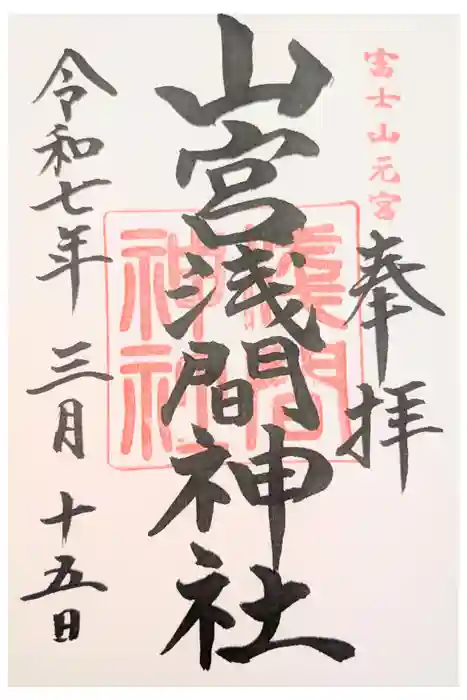 富士山元宮
奉拝
山宮浅間神社
浅間
神社
令和七年三月十五日